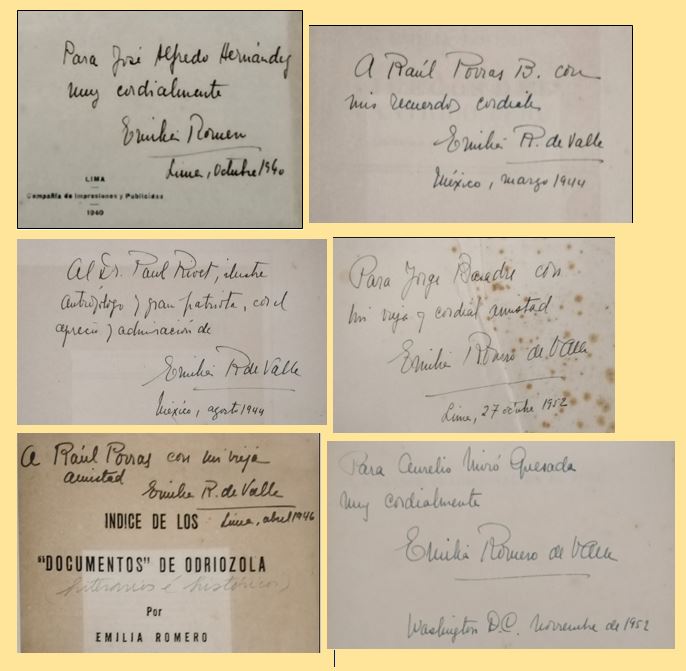 Para José Alfredo Hernández
muy cordialmente
Emilia Romero
Lima, Octubre 1940
LIMA
Compañía de Impresiones y Publicidad
1940
A Raúl Porras B. con
mis recuerdos cordiales
Emilia R. de Valle
México, marzo 1944
Al Dr. Paul Rivet, ilustre
antropólogo y gran patriota, con el
aprecio y admiración de
Emilia R. de Valle
México, agosto 1944
Para Jorge Basadre con
mi vieja y cordial amistad
Emilia Romero de Valle
Lima, 27 octubre 1952
A Raúl Porras con mi vieja
amistad
Emilia R. de Valle
Lima, abril 1946
INDICE DE LOS
"DOCUMENTOS" DE ODRIOZOLA
(literarios é históricos)
Por
EMILIA ROMERO
Para Aurelio Miró Quesada
muy cordialmente
Emilia Romero de Valle
Washington D.C. Noviembre de 1952